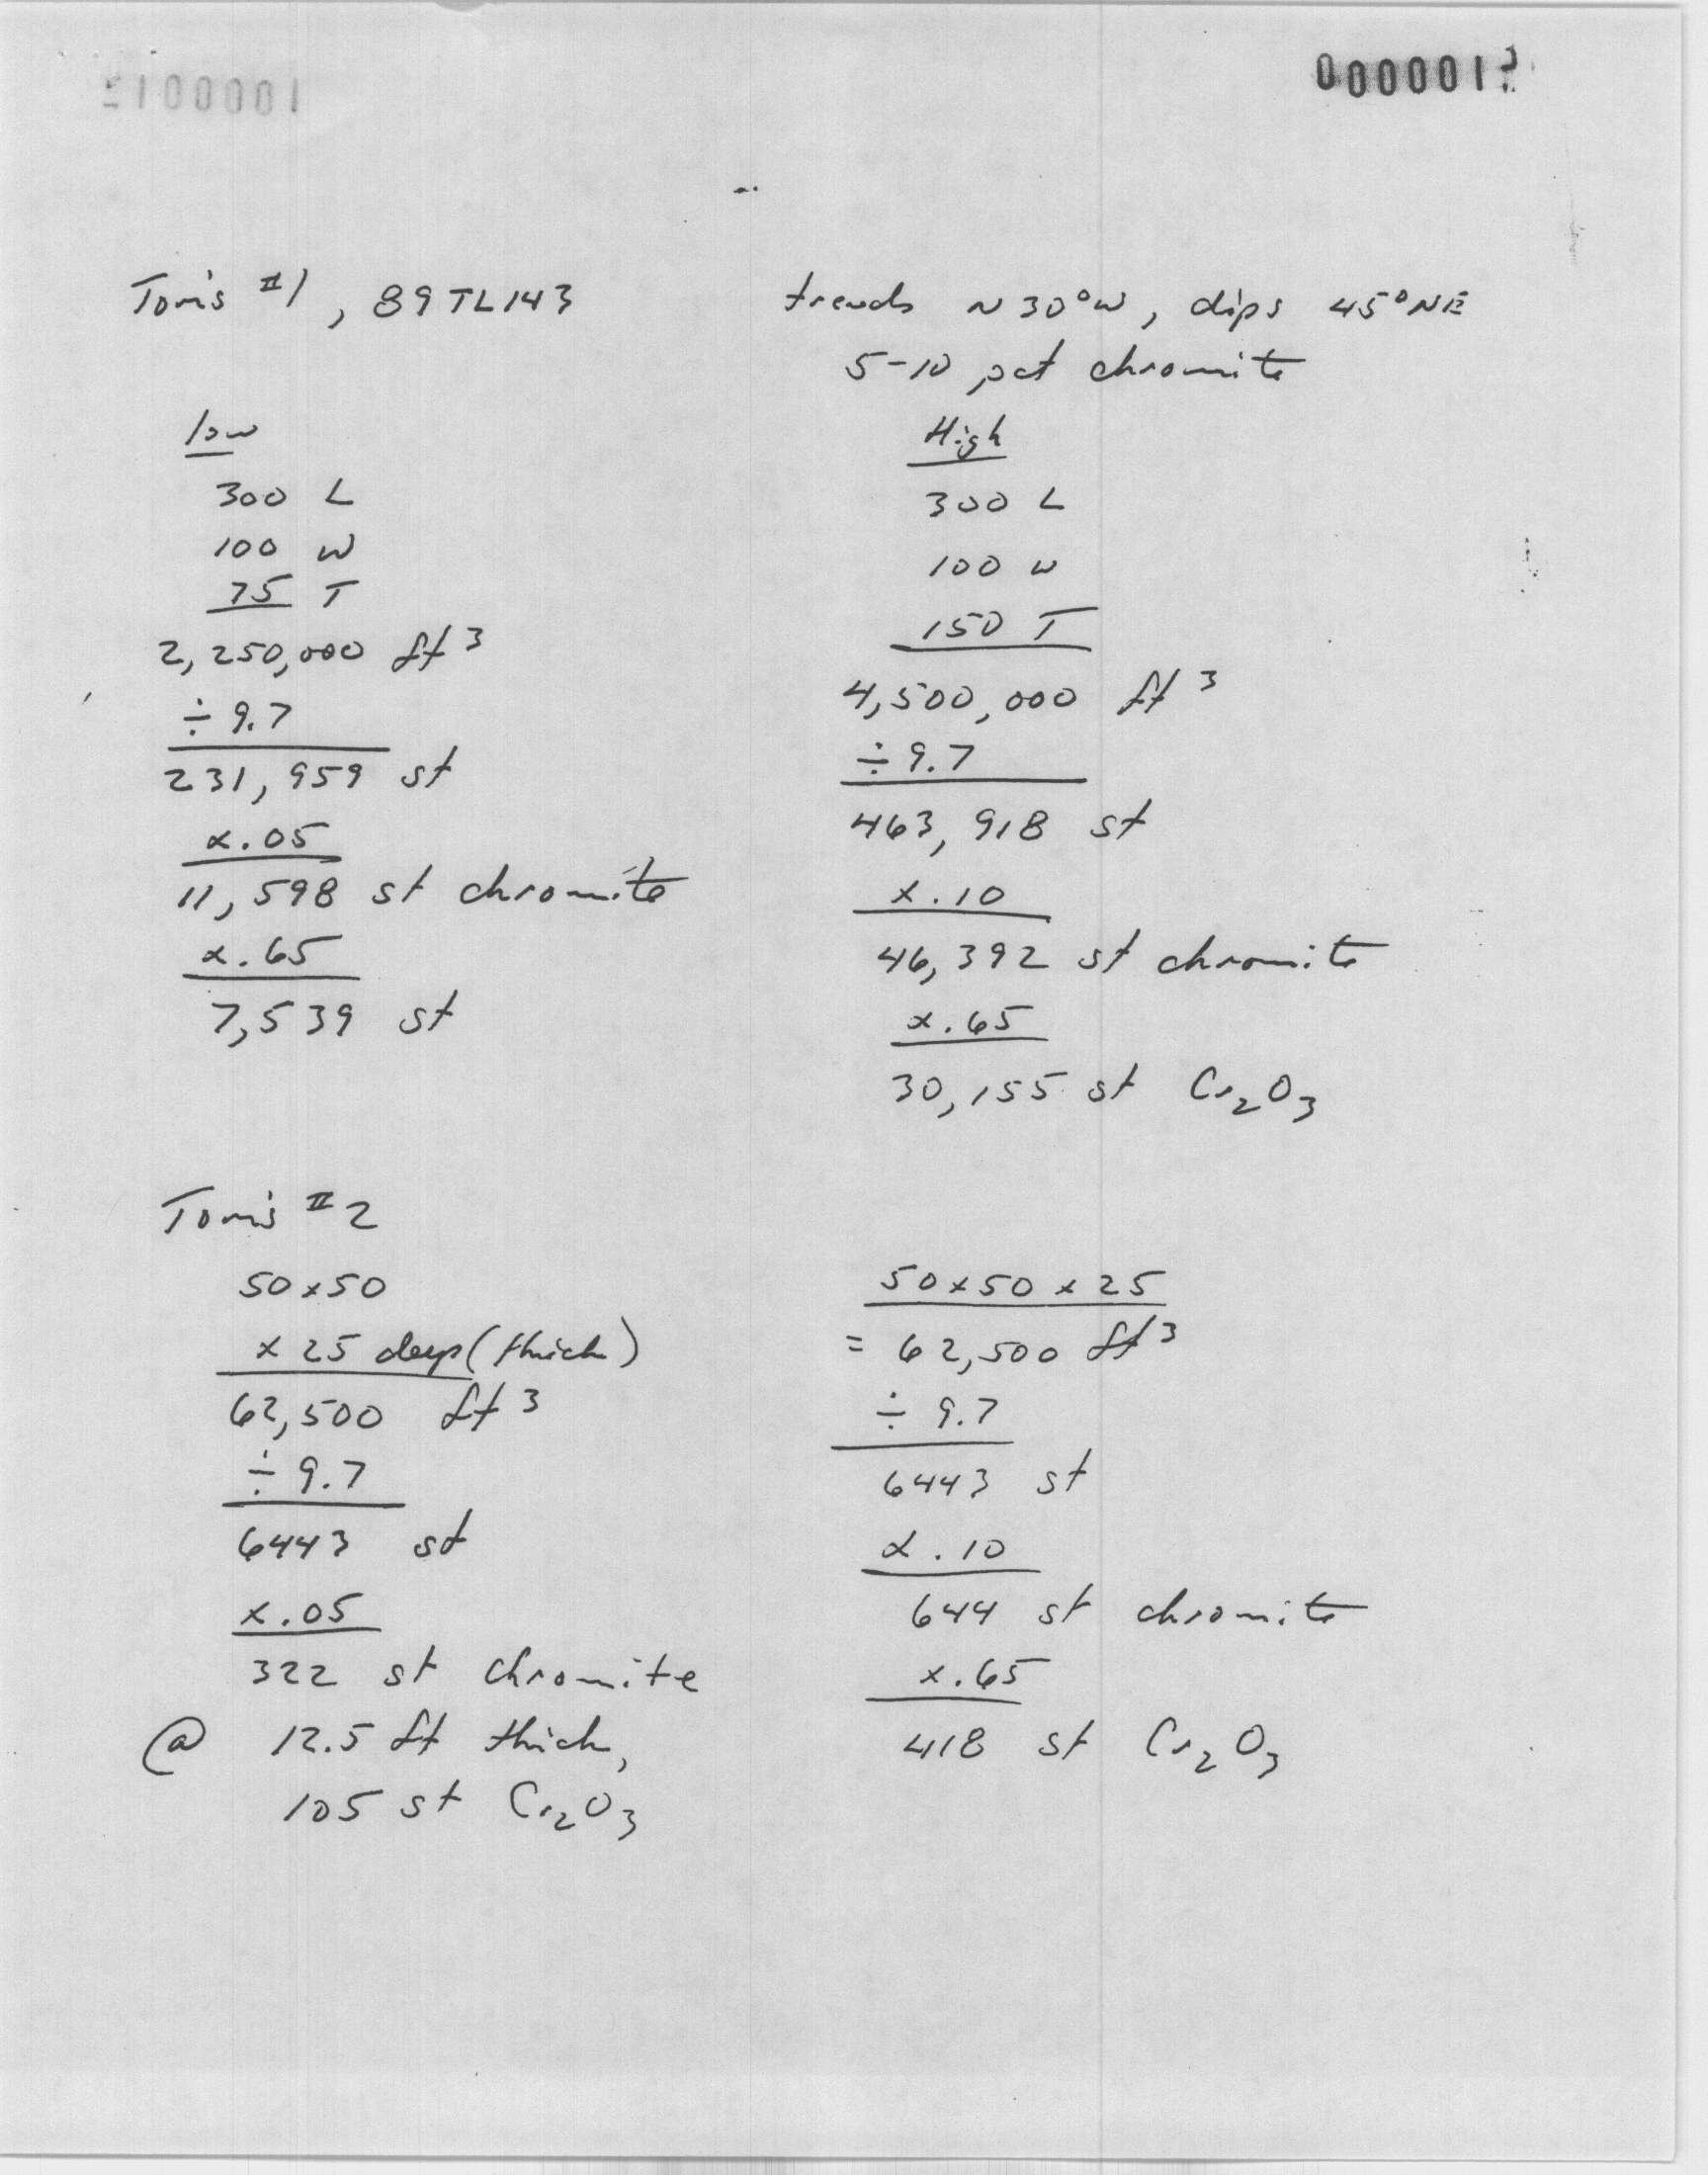 000001
Tom's #1, 89TL143
trends N30°W, dips 45°NE
5-10 pct chromite
low
300 L
100 W
75 T
2,250,000 ft3
÷ 9.7
231,959 st
x.05
11,598 st chromite
x.65
7,539 st
High
300 L
100 W
150 T
4,500,000 ft3
÷ 9.7
463,918 st
x.10
46,392 st chromite
x.65
30,155 st Cr2O3
Tom's #2
50x50
x 25 deep (thick)
62,500 ft3
÷ 9.7
6443 st
x.05
322 st chromite
@ 12.5 ft thick,
105 st Cr2O3
50x50x25
= 62,500 ft3
÷ 9.7
6443 st
x.10
644 st chromite
x.65
418 st Cr2O3